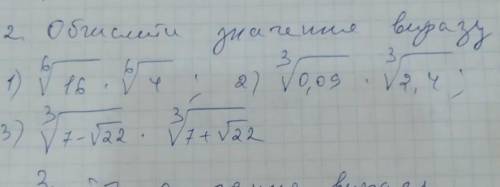 2. Обчислити значення виразу
1) ⁶√16 · ⁶√4 ; 2) ³√0,09 · ³√2,4 ;
3) ³√(7-√22) · ³√(7+√22)